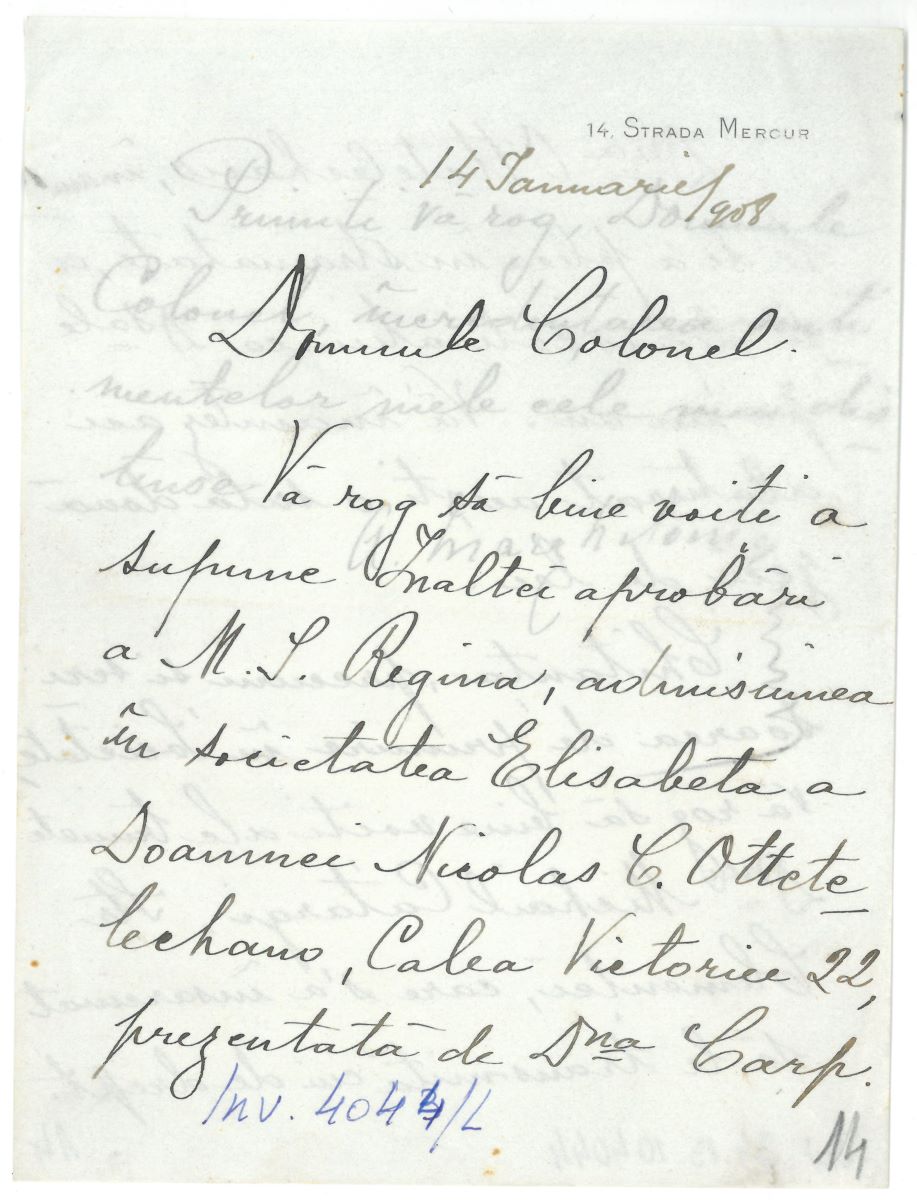 14, STRADA MERCUR
14 Ianuarie/908
Domnule Colonel.
Vă rog să bine voiti a
supune Înaltei aprobări
a M. S. Regina, admisiunea
în societatea Elisabeta a
Doamnei Nicolas C. Ottete-
lechano, Calea Victoriei 22,
prezentată de Dna Carp.
Inv. 4044/L
14